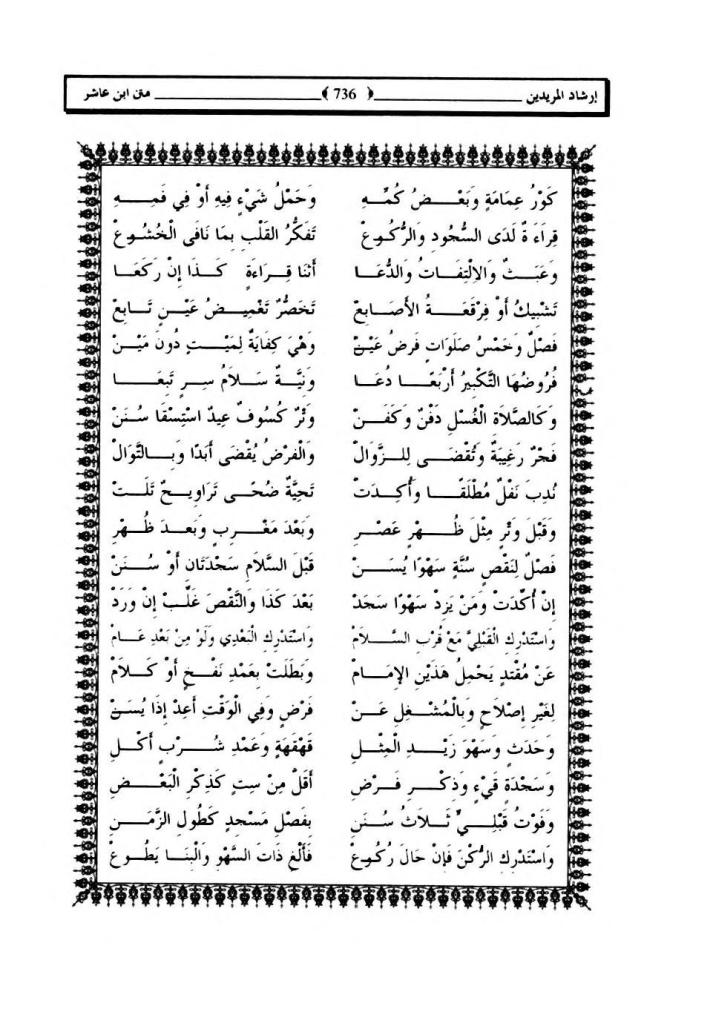 إرشاد المريدين ﴿ 736 ﴾ متن ابن عاشر
كَوْرُ عِمَامَةٍ وَبَعْضُ كُمِّهِ وَحَمْلُ شَيْءٍ فِيهِ أَوْ فِي فَمِهِ
قِرَاءَةٌ لَدَى السُّجُودِ وَالرُّكُوعْ تَفَكُّرُ القَلْبِ بِمَا نَافَى الْخُشُوعْ
وَعَبَثٌ وَالِالْتِفَاتُ وَالدُّعَا أَثْنَا قِرَاءَةٍ كَذَا إِنْ رَكَعَا
تَشْبِيكُ أَوْ فِرْقَعَةُ الأَصَابِعْ تَخَصُّرٌ تَغْمِيضُ عَيْنٍ تَابِعْ
فَصْلٌ وَخَمْسُ صَلَوَاتٍ فَرْضُ عَيْنْ وَهْيَ كِفَايَةٌ لِمَيْتٍ دُونَ مَيْنْ
فُرُوضُهَا التَّكْبِيرُ أَرْبَعًا دُعَا وَنِيَّةٌ سَلَامُ سِرٍّ تَبِعَا
وَكَالصَّلَاةِ الْغُسْلُ دَفْنٌ وَكَفَنْ وَتْرٌ كُسُوفٌ عِيدٌ اسْتِسْقَا سُنَنْ
فَجْرٌ رَغِيبَةٌ وَتُقْضَى لِلزَّوَالْ وَالْفَرْضُ يُقْضَى أَبَدًا وَبِالتَّوَالْ
نُدِبَ نَفْلٌ مُطْلَقًا وَأُكِّدَتْ تَحِيَّةٌ ضُحًى تَرَاوِيحٌ تَلَتْ
وَقَبْلَ وَتْرٍ مِثْلَ ظُهْرٍ عَصْرِ وَبَعْدَ مَغْرِبٍ وَبَعْدَ ظُهْرِ
فَصْلٌ لِنَقْصِ سُنَّةٍ سَهْوًا يُسَنْ قَبْلَ السَّلَامِ سَجْدَتَانِ أَوْ سُنَنْ
إِنْ أُكِّدَتْ وَمَنْ يَزِدْ سَهْوًا سَجَدْ بَعْدَ كَذَا وَالنَّقْصَ غَلِّبْ إِنْ وَرَدْ
وَاسْتَدْرِكِ الْقَبْلِيَّ مَعْ قُرْبِ السَّلَامْ وَاسْتَدْرِكِ الْبَعْدِي وَلَوْ مِنْ بَعْدِ عَامْ
عَنْ مُقْتَدٍ يَحْمِلُ هَذَيْنِ الإِمَامْ وَبَطَلَتْ بِعَمْدِ نَفْخٍ أَوْ كَلَامْ
لِغَيْرِ إِصْلَاحٍ وَبِالْمُشْغِلِ عَنْ فَرْضٍ وَفِي الْوَقْتِ أَعِدْ إِذَا يُسَنْ
وَحَدَثٍ وَسَهْوِ زَيْدِ الْمِثْلِ قَهْقَهَةٍ وَعَمْدِ شُرْبٍ أَكْلِ
وَسَجْدَةٍ قَيْءٍ وَذِكْرِ فَرْضِ أَقَلَّ مِنْ سِتٍّ كَذِكْرِ الْبَعْضِ
وَفَوْتُ قَبْلِيٍّ ثَلَاثُ سُنَنِ بِفَصْلِ مَسْجِدٍ كَطُولِ الزَّمَنِ
وَاسْتَدْرِكِ الرُّكْنَ فَإِنْ حَالَ رُكُوعْ فَأَلْغِ ذَاتَ السَّهْوِ وَالْبِنَا يَطُوعْ